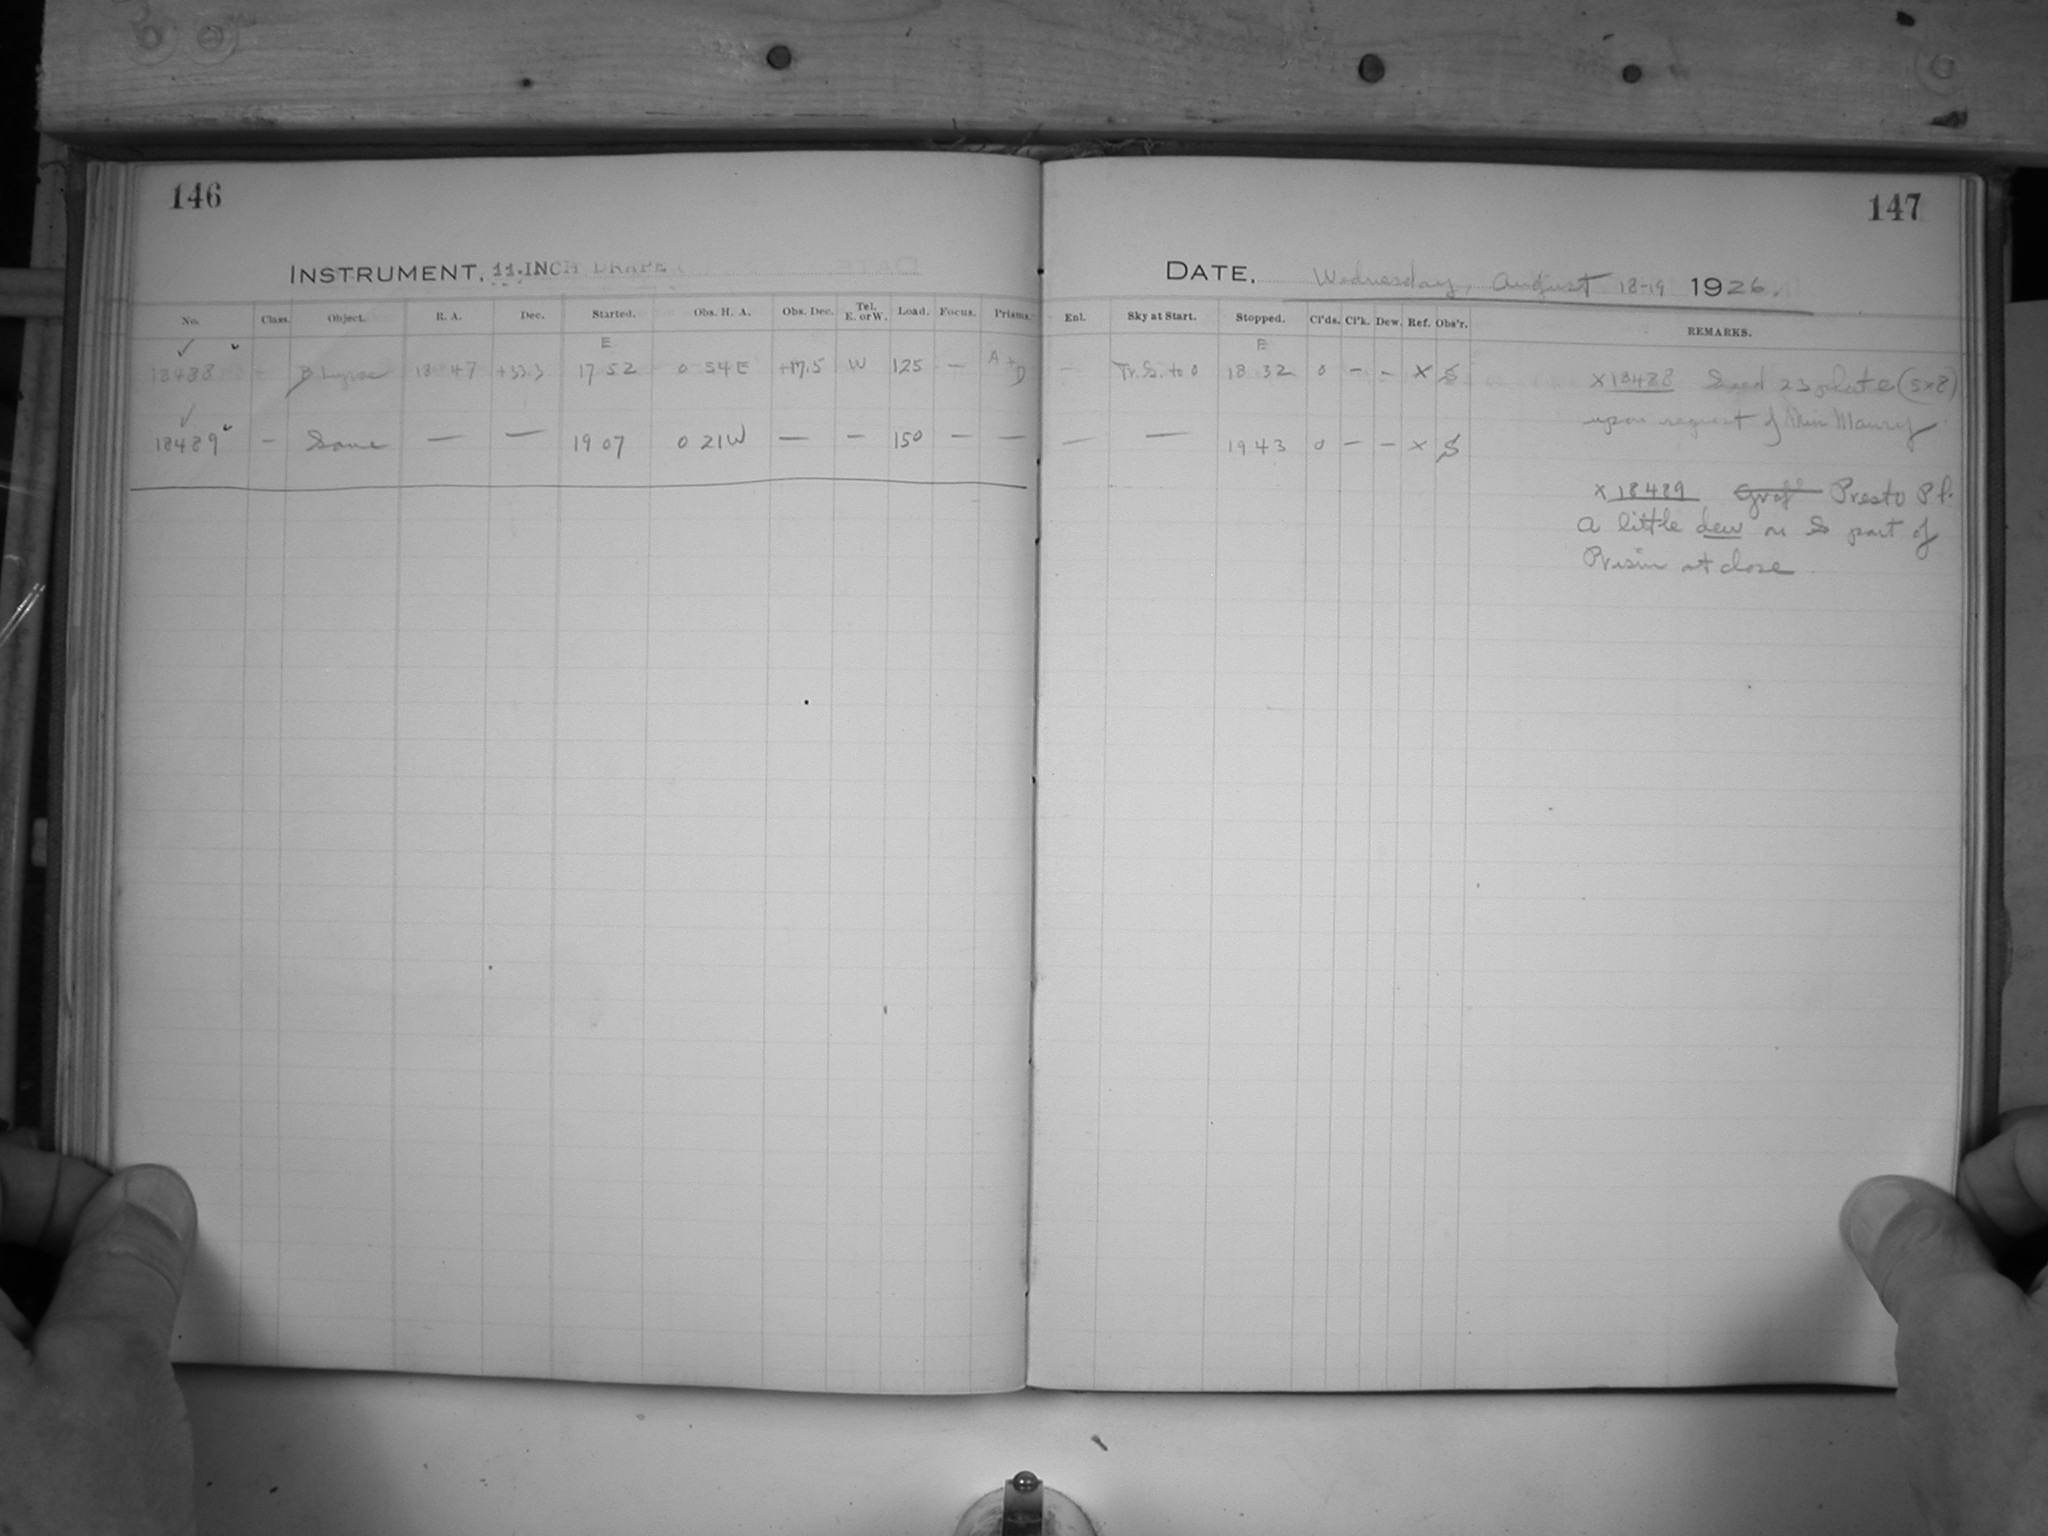 146
147
INSTRUMENT, 11-INCH DRAPER
DATE, Wednesday, August 18-19 1926.
No. Class. Object. R. A. Dec. Started. Obs. H. A. Obs. Dec. Tel. E. or W. Load. Focus. Prisms. Enl. Sky at Start. Stopped. Cl'ds. Cl'k. Dew. Ref. Obs'r. REMARKS.
✓ E E
18488 β Lyrae 18 47 +33.3 17 52 0 54 E +17.5 W 125 — A + D — Tr. S. to 0 18 32 0 – – x S
✓
18489 – Same — — 19 07 0 21 W — – 150 – — — — 19 43 0 – – x S
x 18488 Seed 23 plate (5x8)
upon request of Miss Maury
x 18489 Presto Pl.
a little dew on S part of
Prism at close